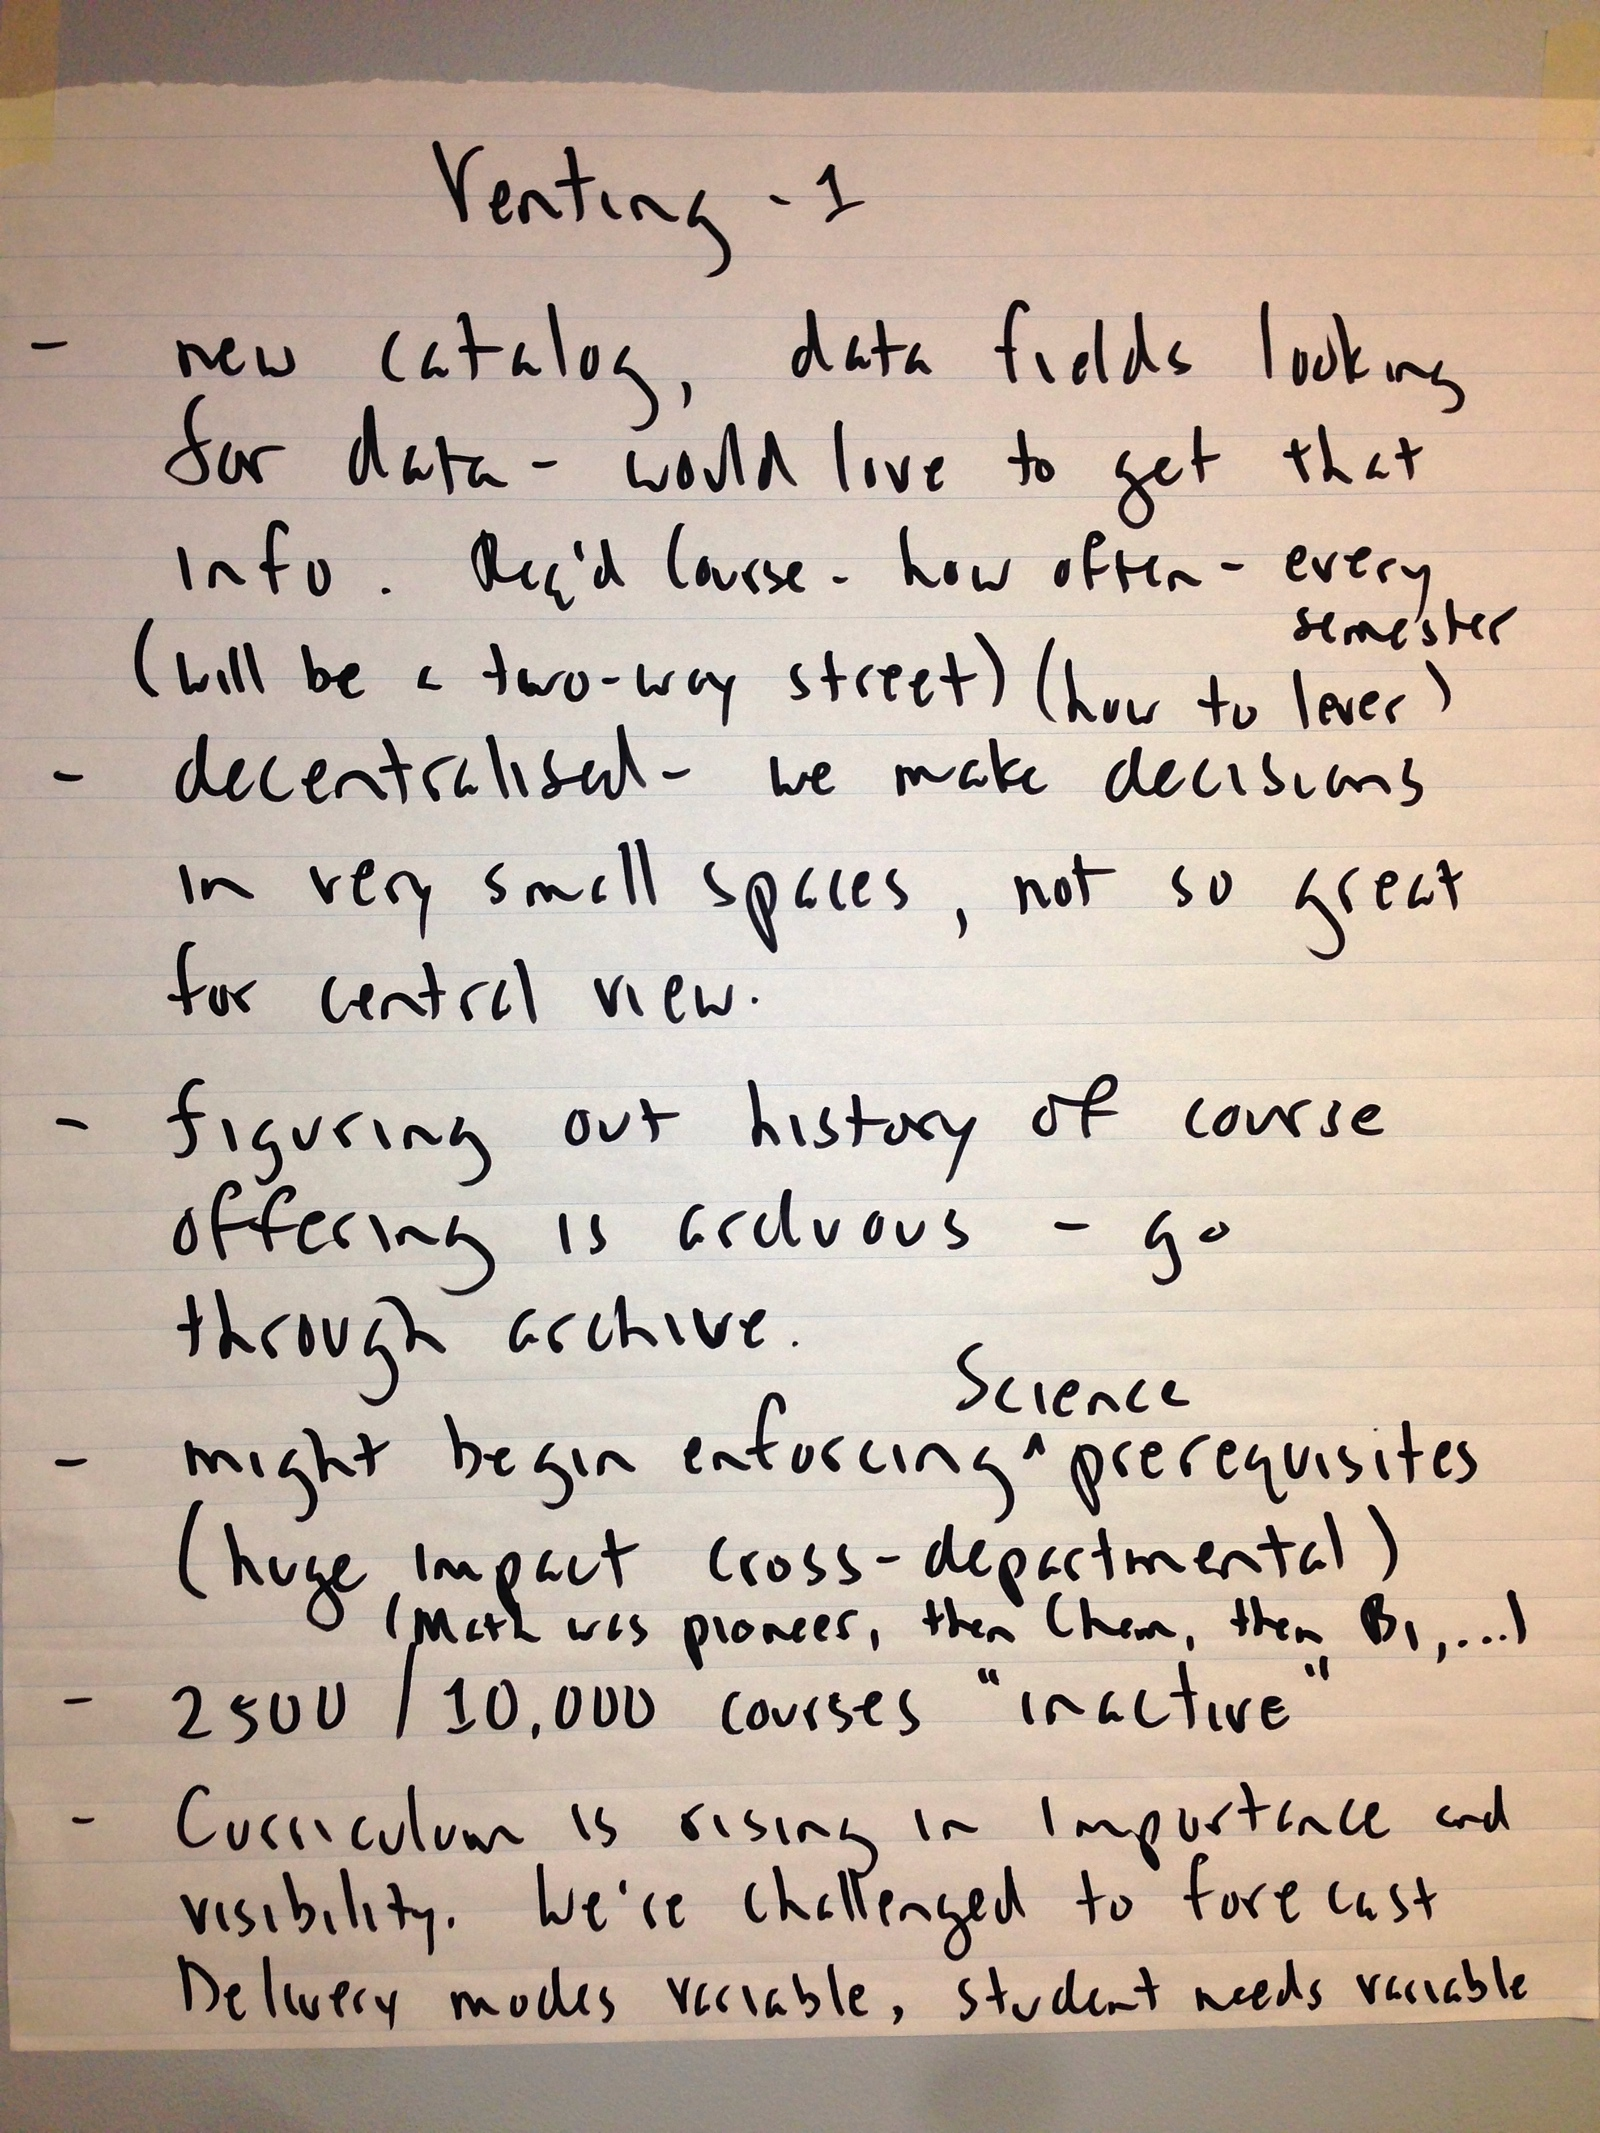 Venting - 1
- new catalog, data fields looking
for data - would love to get that
info. Req'd Course - how often - every
semester
(will be a two-way street) (how to lever)
- decentralised - we make decisions
in very small spaces, not so great
for central view.
- figuring out history of course
offering is arduous - go
through archive.
Science
- might begin enforcing ^ prerequisites
(huge impact cross-departmental)
(Math was pioneer, then Chem, then Bi, ...)
- 2500 / 10,000 courses "inactive"
- Curriculum is rising in importance and
visibility. We're challenged to forecast
Delivery modes variable, student needs variable